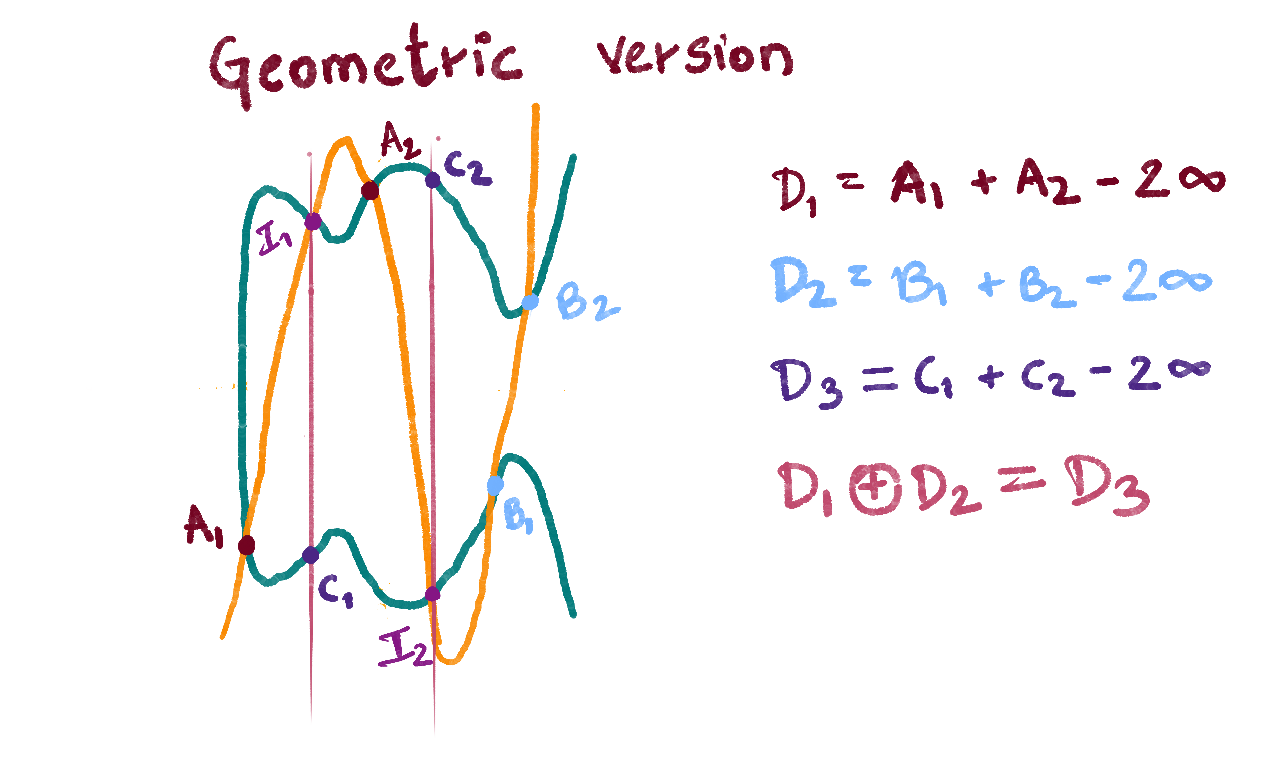 Geometric version
A₂
C₂
I₁
B₂
A₁
B₁
C₁
I₂
D₁ = A₁ + A₂ - 2∞
D₂ = B₁ + B₂ - 2∞
D₃ = C₁ + C₂ - 2∞
D₁ ⊕ D₂ = D₃